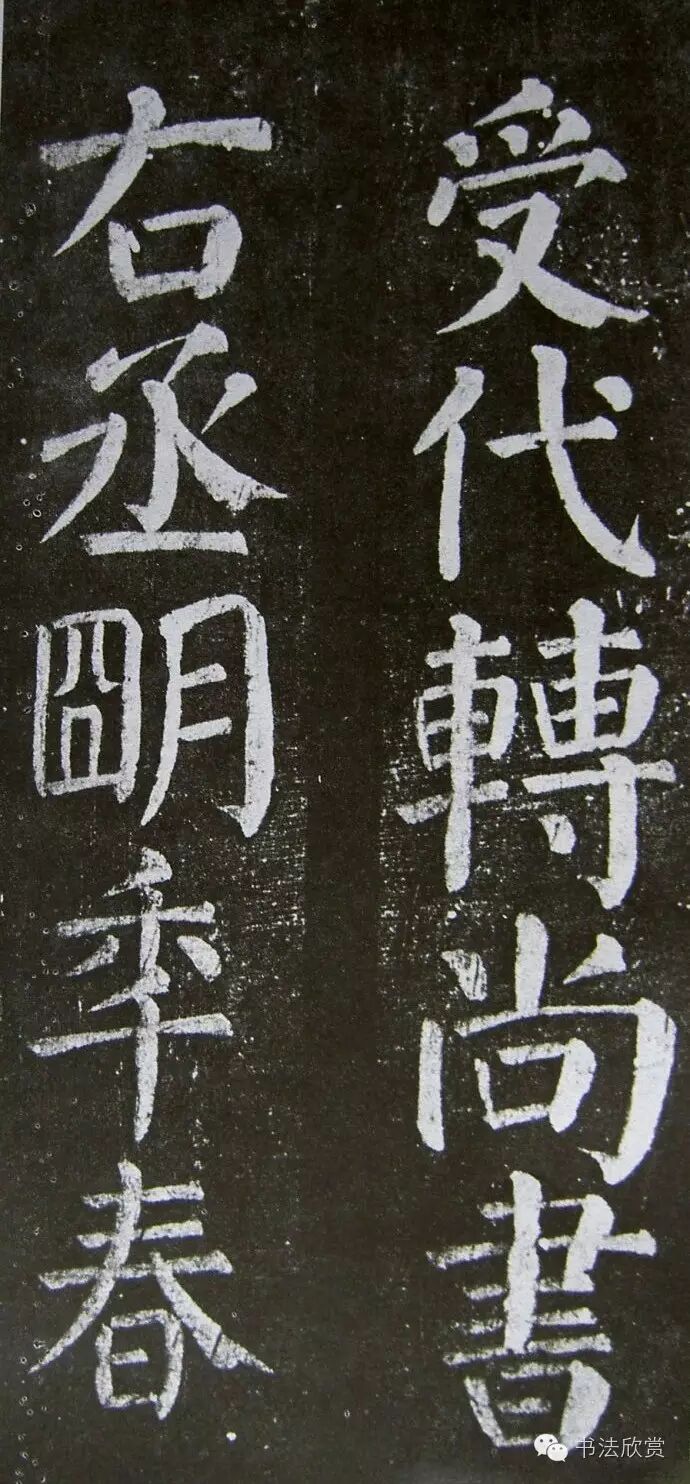 受代轉尚書
右丞明年春
书法欣赏